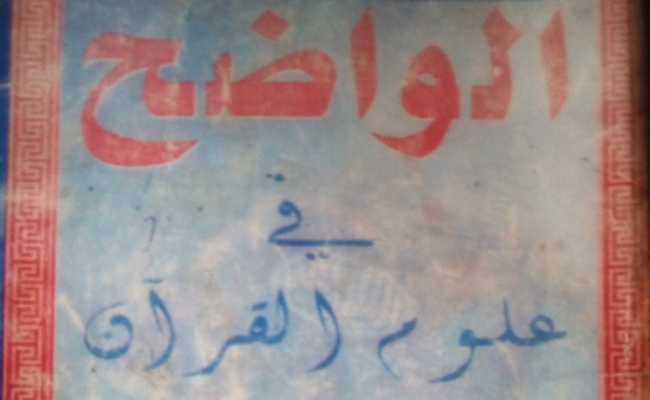 الواضح
في
علوم القرآن